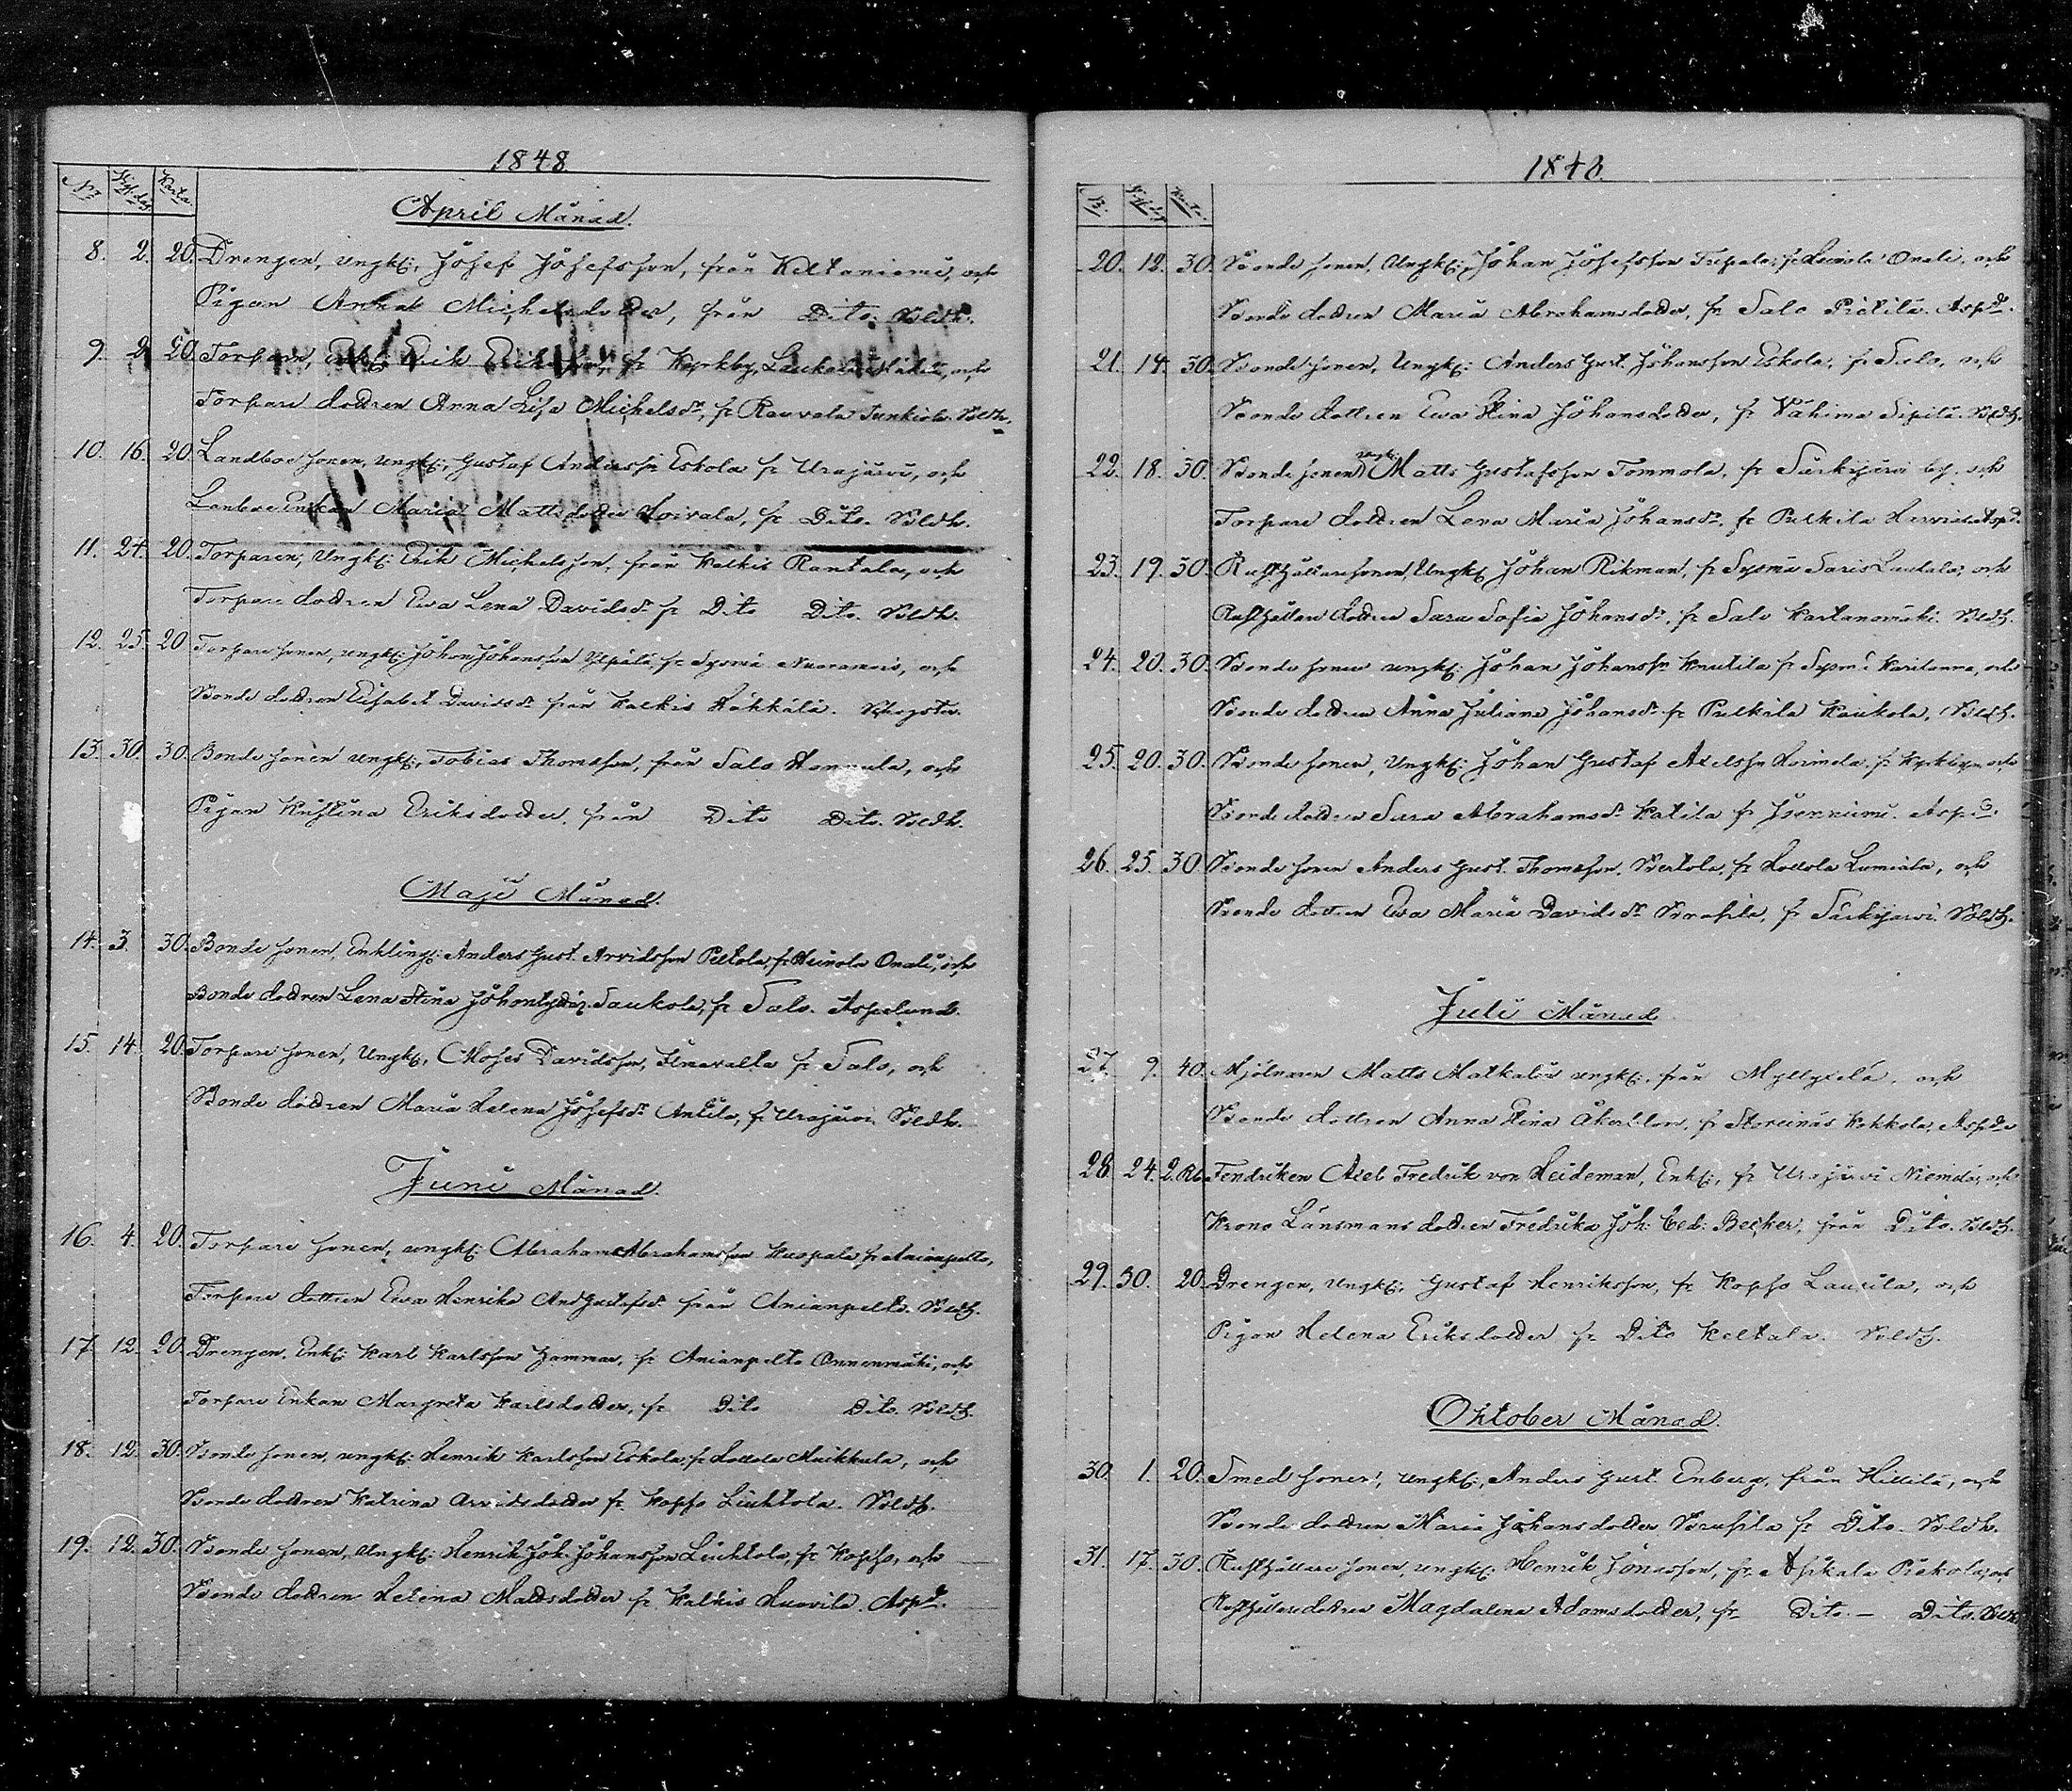 1848.
April Månad.
8. 2. 20. Drengen, ungk: Josef Josefsson, från Keltaniemi, och
Pigan Anna Michelsdotter, från Dito. Boldh.
9. 2. 20. Torparen, Enkl: Erik Eriksson, fr Kyrkby, och
Torpare dottren Anna Lisa Michelsdr, fr Rauvala Junkiola. Boldh.
10. 16. 20. Landboe sonen, ungk: Gustaf Andersson Eskola fr Urajärvi, och
Enkan Maria Mattsdotter Hoivala, fr Dito. Boldh.
11. 24. 20. Torparen, Ungk: Erik Michelsson, från Kalkis Rantala, och
Torpare dottren Ewa Lena Davidsdr fr Dito Dito. Boldh.
12. 25. 20 Torpare sonen, ungk: Johan Johansson fr Sysmä Nuoramois, och
Bonde dottren Elisabet Davidsdr från Kalkis Häkkälä.
13. 30. 30. Bonde sonen Ungk: Tobias Thomsson, från Salo, och
Pigan Kristina Eriksdotter, från Dito Dito. Boldh.
Maji Månad.
14. 3. 30. Bonde sonen, Enkling: Anders Gust. Arvidsson Peltola, fr Heinola Onali, och
Bonde dottren Lena Stina Saukola, fr Salo. Aspelund.
15. 14. 20. Torpare sonen, Ungk: Moses Davidsson, fr Salo, och
Bonde dottren Maria Helena Josefsdr Anttila, fr Urajärvi. Boldh.
Juni Månad.
16. 4. 20. Torpare sonen, ungk: Abraham Abrahamsson fr Anianpelto,
Torpare dottren Ewa Henrika And Gustafsdr från Anianpelto. Boldh.
17. 12. 20. Drengen, Enkl: Karl Karlsson Hammar, fr Anianpelto Onnenmäki, och
Torpare Enkan Margreta Karlsdotter, fr Dito Dito. Boldh.
18. 12. 30. Bonde sonen, ungk: Henrik Karlsson Eskola, fr Hollola, och
Bonde dottren Katrina Arvidsdotter fr Kopso Liuhtola. Boldh.
19. 12. 30. Bonde sonen, Ungk: Henrik Joh. Johansson Liuhtola, fr Kopso, och
Bonde dottren Helena Mattsdotter fr Kalkis Huovila. Aspd.
1848.
20. 12. 30. Bonde sonen, Ungk: Johan Josefsson, fr Heinola Onali, och
Bonde dottren Maria Abrahamsdotter, fr Salo Pietilä. Aspd.
21. 14. 30. Bonde sonen, Ungk: Anders Gust. Johansson Eskola, fr Salo, och
Bonde dottren Ewa Stina Johansdotter, fr Vähima Sipilä. Boldh.
22. 18. 30. Bonde sonen ungk: Matts Gustafsson Tommola, fr Särkijärvi by, och
Torpare dottren Lena Maria Johansdr, fr Pulkila
23. 19. 30. Rusthållare sonen, Ungk: Johan Rikman, fr Sysmä Saris Laukala, och
Rusthållare dottren Sara Sofia Johansdr, fr Salo Kartanomäki. Boldh.
24. 20. 30. Bonde sonen ungk: Johan Johansson Knutila fr Sysmä Karilanma, och
Bonde dottren Anna Juliana Johansdr fr Pulkila Kaukola, Boldh.
25. 20. 30. Bonde sonen, Ungk: Johan Gustaf Axelsson, fr Kyrkbyn, och
Bonde dottren Sara Abrahamsdr Katila fr Isenniemi. Aspd.
26. 25. 30. Bonde sonen Anders Gust. Thomsson, fr Hollola, och
Bonde dottren Ewa Maria Davidsdr, fr Särkijärvi. Boldh.
Juli Månad
27. 9. 40. Mjölnaren Matts Matkalin ungk: från Myllykselä, och
Bonde dottren Anna Stina Åkerblom, fr Storeinäs Kokkola, Aspd.
28 24. 2. Rb. Fendriken Axel Fredrik von Heideman, Enkl:, fr Urajärvi, och
Krono Länsmans dottren Fredrika Joh: Ced: Becker, från Dito. Boldh.
29. 30. 20. Drengen, Ungk: Gustaf Henriksson, fr Kopso Laurila, och
Pigan Helena Eriksdotter fr Dito Keltala. Boldh.
Oktober Månad.
30. 1. 20. Smed sonen, Ungk: Anders Gust. Enberg, från Hillilä, och
Bonde dottren Maria Johansdotter fr Dito. Boldh.
31. 17. 30. Rusthållare sonen, ungk: Henrik Jonasson, fr Asikala, och
Rusthållare dottren Magdalena Adamsdotter, fr Dito. — Dito. Boldh.